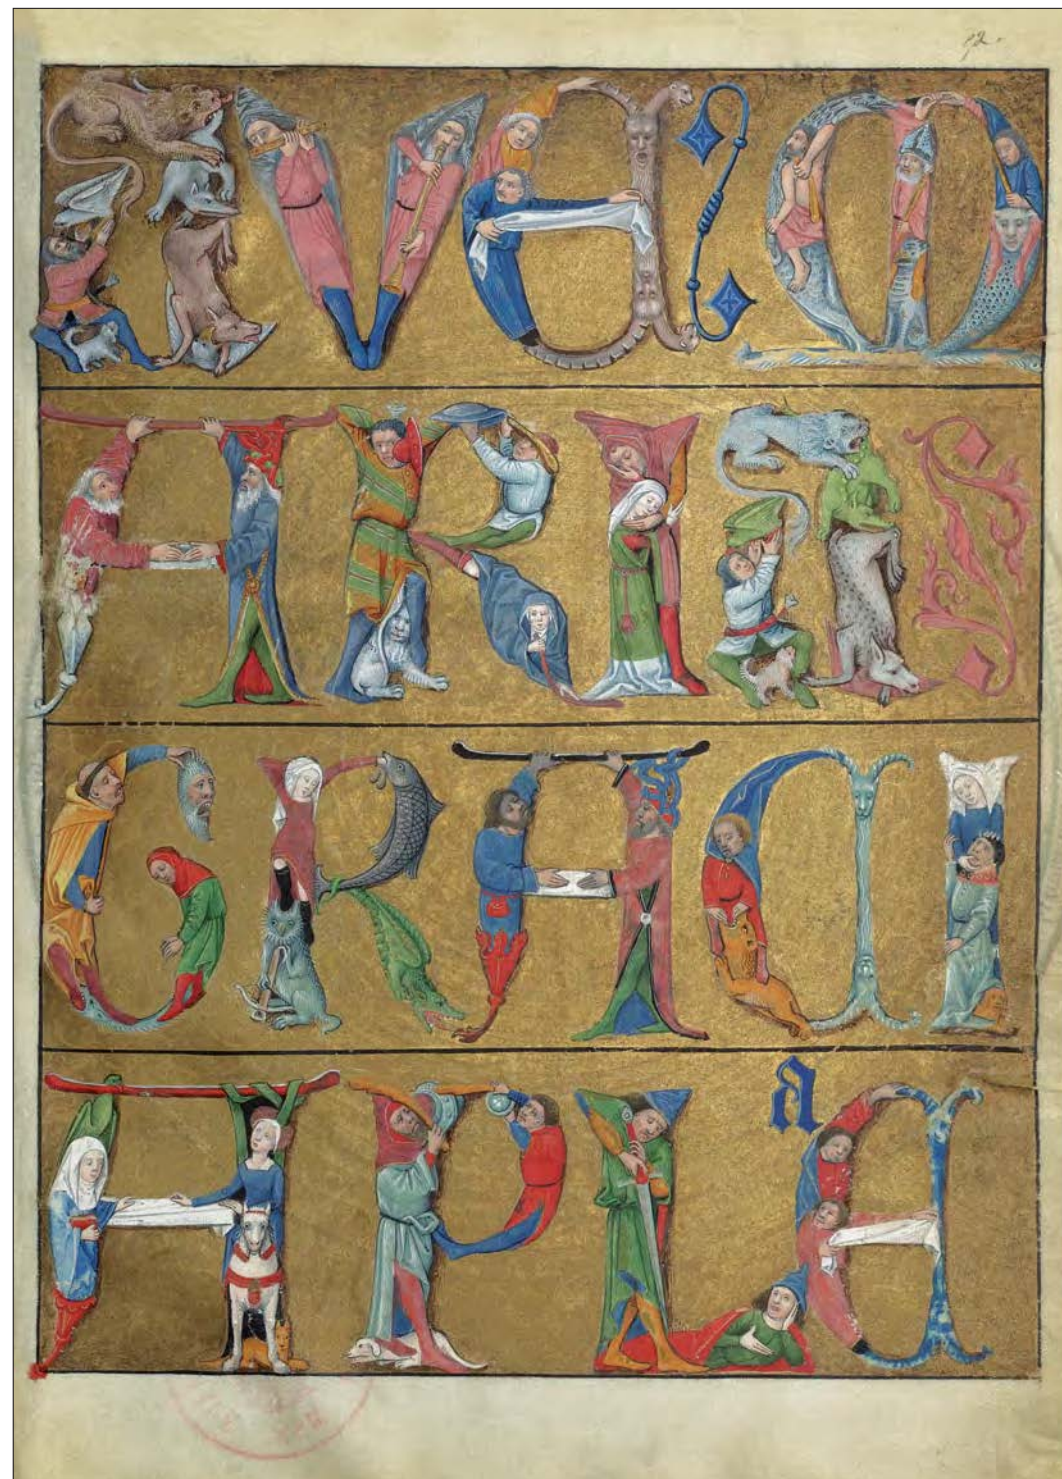 52.
AVE M
ARIA
GRACI
A PLEᵃ